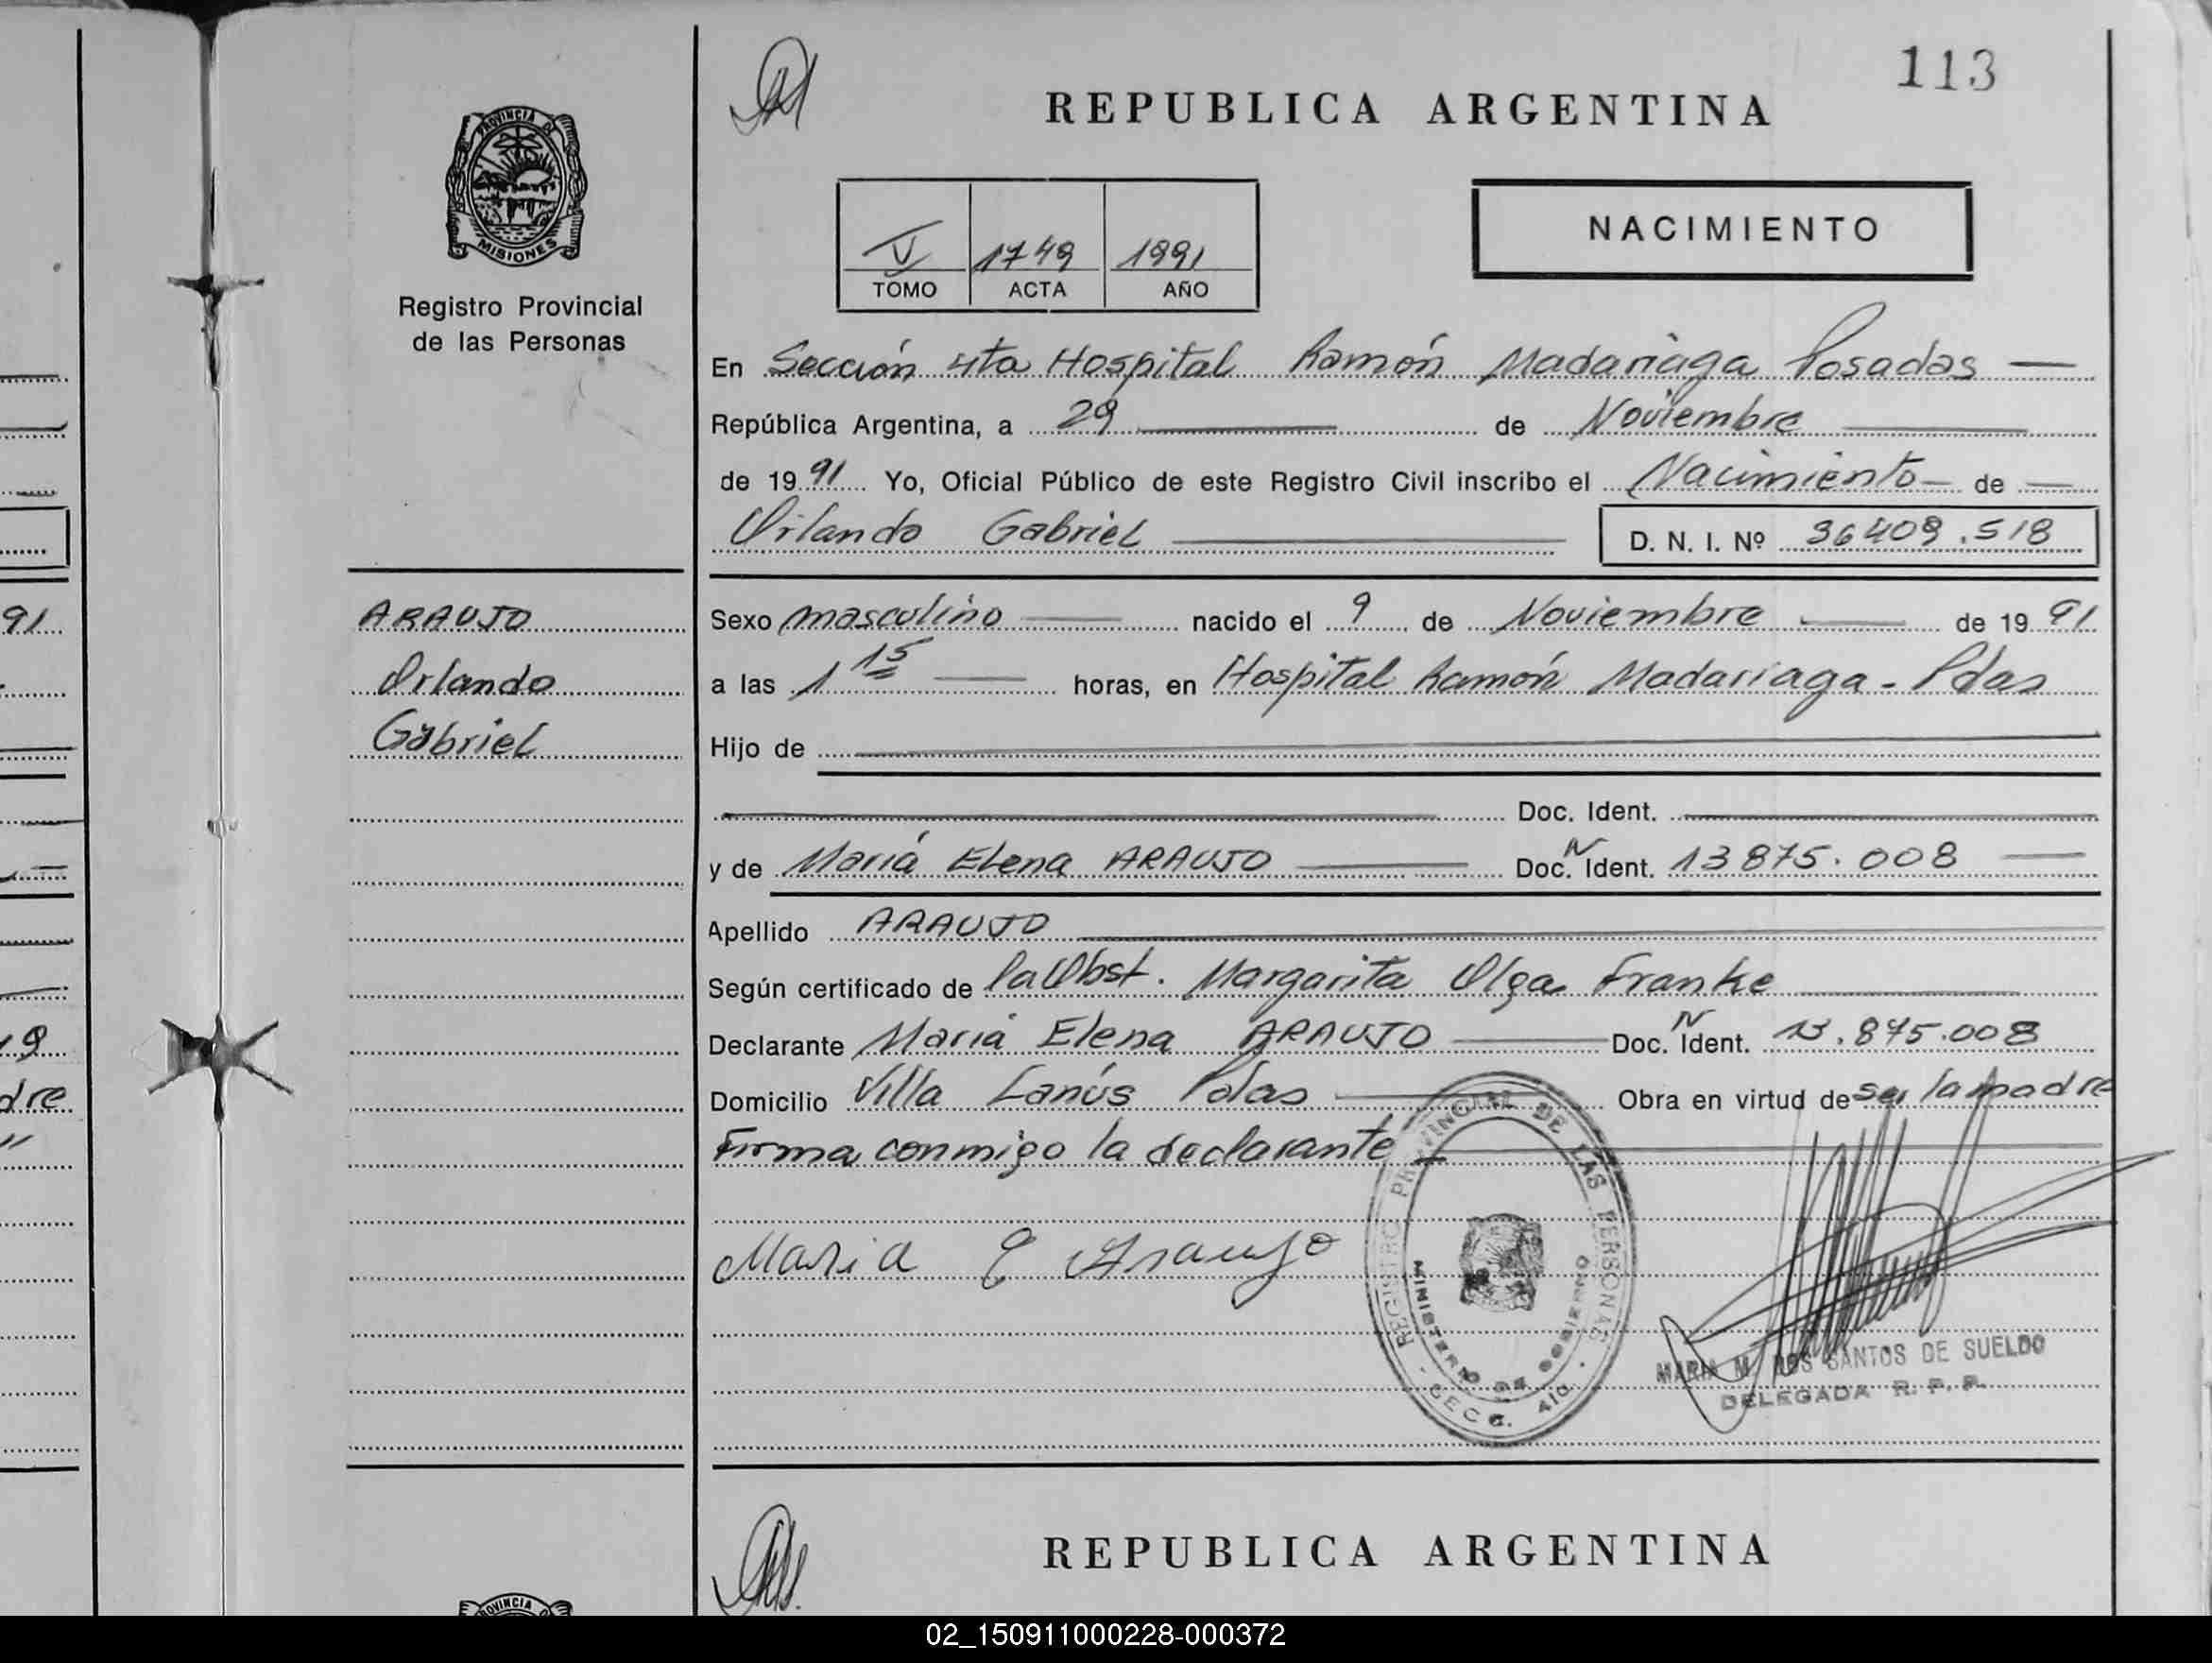 113
REPUBLICA ARGENTINA
PROVINCIA DE MISIONES
NACIMIENTO
V 1749 1991
TOMO ACTA AÑO
Registro Provincial
de las Personas
En Sección 4ta Hospital Ramón Madariaga Posadas —
República Argentina, a 29 — de Noviembre —
de 1991 Yo, Oficial Público de este Registro Civil inscribo el Nacimiento — de —
Orlando Gabriel — D. N. I. Nº 36409.518
ARAUJO
Orlando
Gabriel
Sexo masculino — nacido el 9 de Noviembre — de 1991
a las 1 15 — horas, en Hospital Ramón Madariaga - Pdas
Hijo de —
— Doc. Ident. —
y de María Elena ARAUJO — Doc. N Ident. 13875.008 —
Apellido ARAUJO —
Según certificado de la Obst. Margarita Olga Franke —
Declarante María Elena ARAUJO — Doc. N Ident. 13.875.008
Domicilio Villa Lanús Pdas — Obra en virtud de ser la madre
Firma conmigo la declarante —
Maria E Araujo
REGISTRO PROVINCIAL DE LAS PERSONAS
MINISTERIO DE GOBIERNO
- SECC. 4ta. -
MARIA M. DOS SANTOS DE SUELDO
DELEGADA R. P. P.
REPUBLICA ARGENTINA
PROVINCIA
91
19
dre
02_150911000228-000372